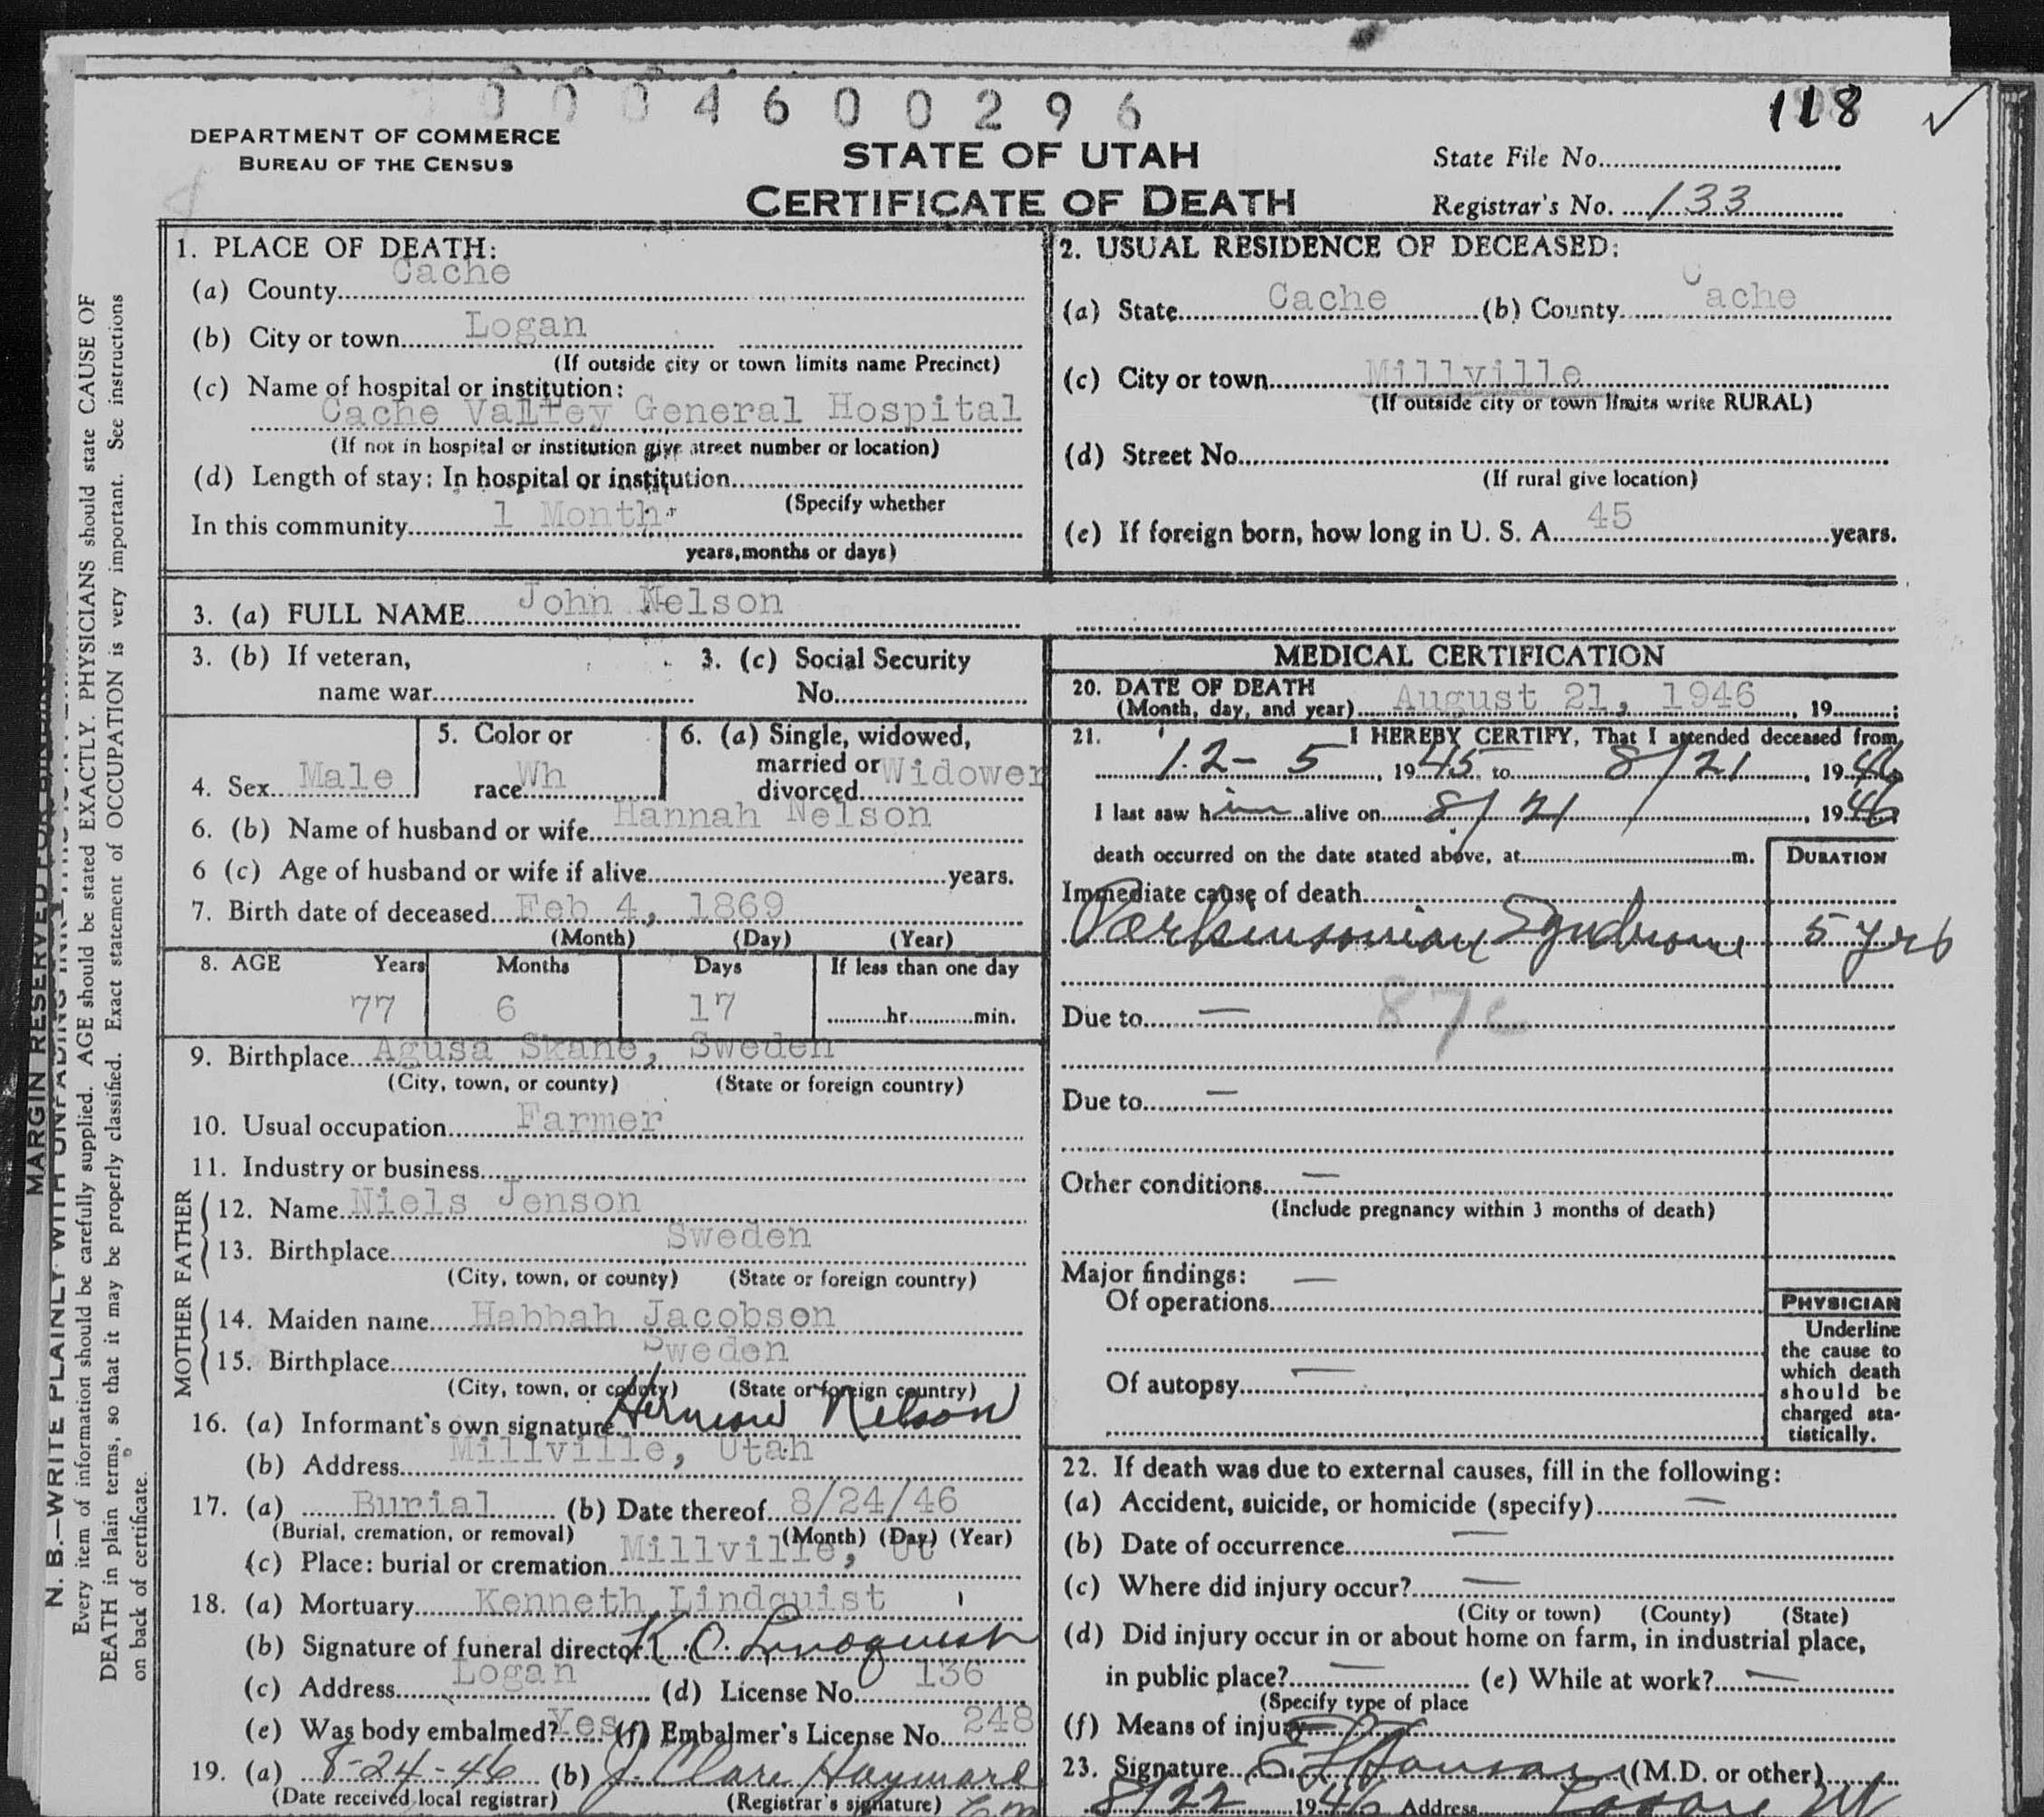 0 0 0 4 6 0 0 2 9 6
118 ✓
DEPARTMENT OF COMMERCE
BUREAU OF THE CENSUS
STATE OF UTAH
CERTIFICATE OF DEATH
State File No.
Registrar's No. 133
1. PLACE OF DEATH:
(a) County Cache
(b) City or town Logan
(If outside city or town limits name Precinct)
(c) Name of hospital or institution:
Cache Valley General Hospital
(If not in hospital or institution give street number or location)
(d) Length of stay: In hospital or institution
(Specify whether
In this community 1 Month
years, months or days)
2. USUAL RESIDENCE OF DECEASED:
(a) State Cache (b) County Cache
(c) City or town Millville
(If outside city or town limits write RURAL)
(d) Street No.
(If rural give location)
(e) If foreign born, how long in U. S. A. 45 years.
3. (a) FULL NAME John Nelson
3. (b) If veteran,
name war
3. (c) Social Security
No.
4. Sex Male
5. Color or
race Wh
6. (a) Single, widowed,
married or
divorced Widower
6. (b) Name of husband or wife Hannah Nelson
6 (c) Age of husband or wife if alive years.
7. Birth date of deceased Feb 4, 1869
(Month) (Day) (Year)
8. AGE Years Months Days If less than one day
77 6 17 hr. min.
9. Birthplace Agusa Skane, Sweden
(City, town, or county) (State or foreign country)
10. Usual occupation Farmer
11. Industry or business
FATHER
12. Name Niels Jenson
13. Birthplace Sweden
(City, town, or county) (State or foreign country)
MOTHER
14. Maiden name Habbah Jacobson
15. Birthplace Sweden
(City, town, or county) (State or foreign country)
16. (a) Informant's own signature Herman Nelson
(b) Address Millville, Utah
17. (a) Burial (b) Date thereof 8/24/46
(Burial, cremation, or removal) (Month) (Day) (Year)
(c) Place: burial or cremation Millville, Ut
18. (a) Mortuary Kenneth Lindquist
(b) Signature of funeral director K. O. Lindquist
(c) Address Logan (d) License No. 136
(e) Was body embalmed? Yes (f) Embalmer's License No. 248
19. (a) 8-24-46 (b) J. Clare Hayward
(Date received local registrar) (Registrar's signature)
MEDICAL CERTIFICATION
20. DATE OF DEATH
(Month, day, and year) August 21, 1946, 19 ;
21. I HEREBY CERTIFY, That I attended deceased from
12-5, 1945, to 8/21, 1946
I last saw him alive on 8/21, 1946
death occurred on the date stated above, at m.
DURATION
Immediate cause of death
Parkinsonian Syndrome 5 yrs
Due to — 87c
Due to —
Other conditions —
(Include pregnancy within 3 months of death)
Major findings: —
Of operations
Of autopsy —
PHYSICIAN
Underline
the cause to
which death
should be
charged sta-
tistically.
22. If death was due to external causes, fill in the following:
(a) Accident, suicide, or homicide (specify) —
(b) Date of occurrence —
(c) Where did injury occur? —
(City or town) (County) (State)
(d) Did injury occur in or about home on farm, in industrial place,
in public place? — (e) While at work? —
(Specify type of place
(f) Means of injury —
23. Signature (M.D. or other)
8/22 1946 Address Logan Ut
N. B.—WRITE PLAINLY WITH UNFADING INK
MARGIN RESERVED FOR BINDING
Every item of information should be carefully supplied. AGE should be stated EXACTLY. PHYSICIANS should state CAUSE OF
DEATH in plain terms, so that it may be properly classified. Exact statement of OCCUPATION is very important. See instructions
on back of certificate.